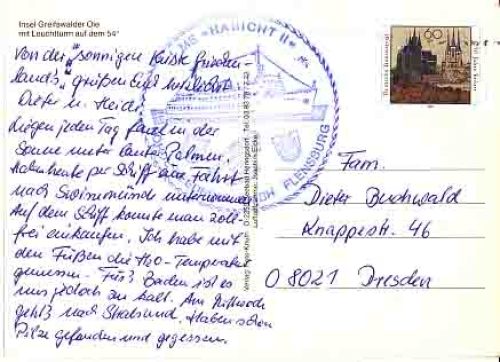 Insel Greifswalder Oie
mit Leuchtturm auf dem 54°
Von der "sonnigen Küste Frieden-
lands" grüßen Euch herzlichst
Dieter u. Heidi
Liegen jeden Tag faul in der
Sonne unter Palmen.
Haben heute per Schiff eine Fahrt
nach Swinemünd unternommen.
Auf dem Schiff konnte man zoll-
frei einkaufen. Ich habe mit
den Füßen die H2O-Temperatur
gemessen. Fürs Baden ist es
uns jedoch zu kalt. Am Mittwoch
gehts nach Stralsund. Haben schon
Pilze gefunden und gegessen.
MS "HANICHT II"
FLENSBURG
Deutsche Bundespost
60
Fam.
Dieter Buchwald
Knappestr. 46
O 8021 Dresden